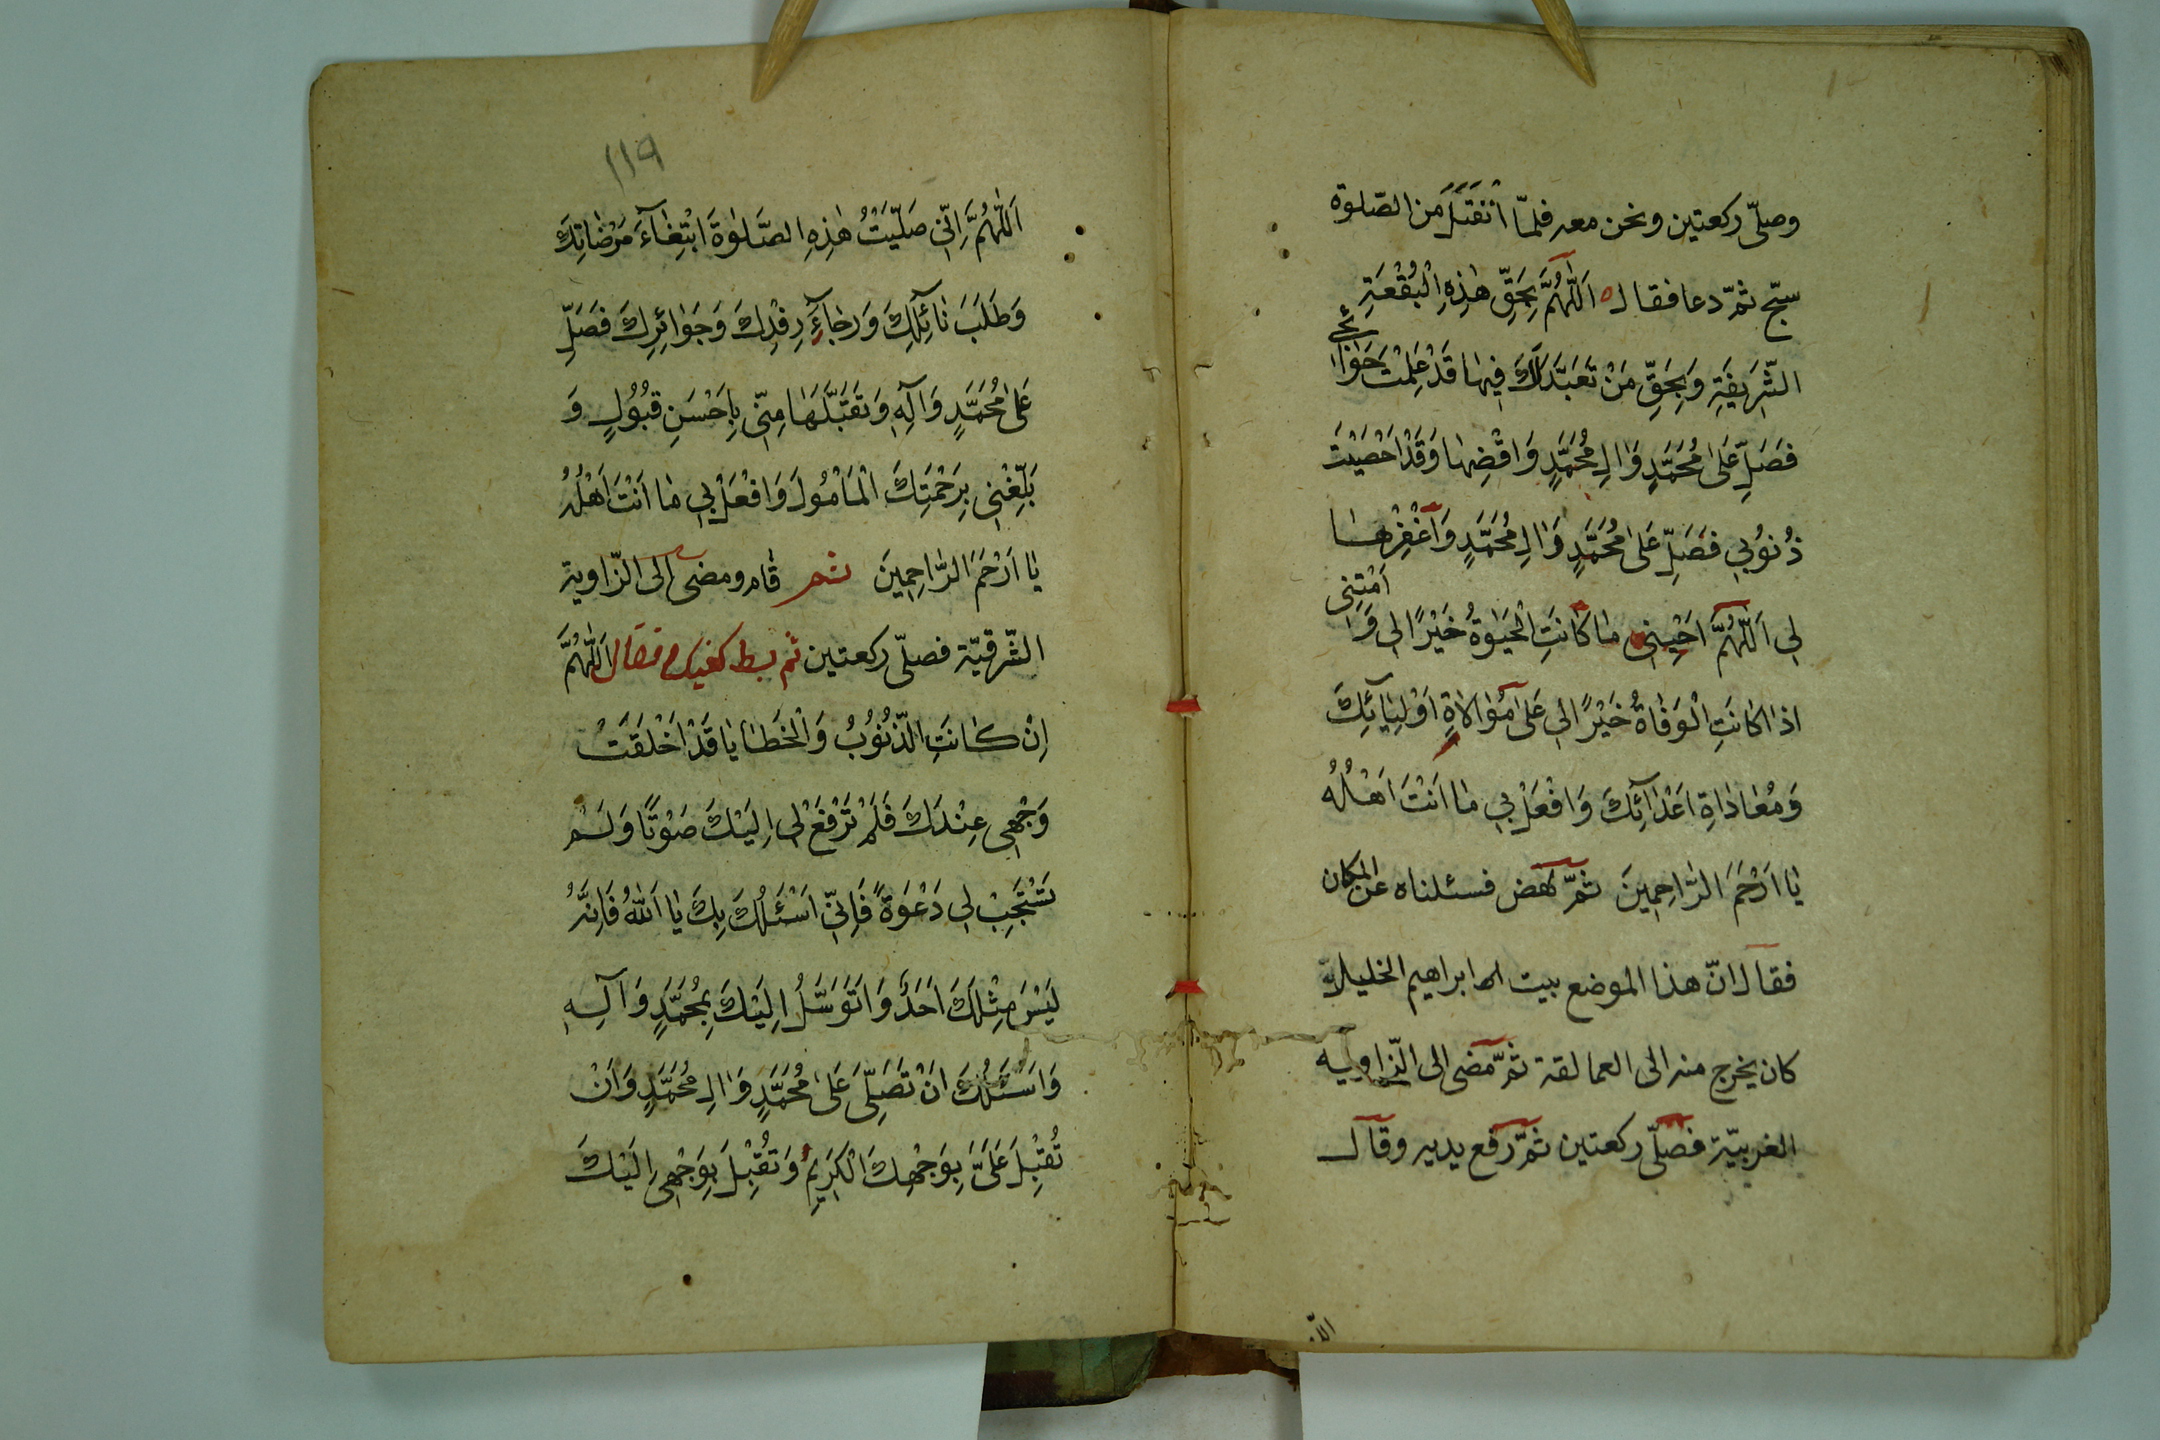 وصلّى ركعتين ونحن معه فلمّا أنفَتَلَ من الصّلوة
سبّح ثمّ دعا فقال اَللّٰهُمَّ بِحَقِّ هٰذِهِ الْبُقْعَةِ
الشَّرِيفَةِ وَبِحَقِّ مَنْ تَعَبَّدَ لَكَ فِيهٰا قَدْ عَلِمْتَ حَوٰائجي
فَصَلِّ عَلىٰ مُحَمَّدٍ وَاٰلِ مُحَمَّدٍ وَاقْضِهٰا وَقَدْ اَحْصَيْتَ
ذُنُوُبي فَصَلِّ عَلىٰ مُحَمَّدٍ وَاٰلِ مُحَمَّدٍ وَاَغْفِرْهٰا
لِي اَللّٰهُمَّ اَحْيِنِي مٰا كٰانَتِ الْحَيٰوةُ خَيْرًا لِي وَاَمِتْنِي
اِذٰا كٰانَتِ الْوَفٰاةُ خَيْرًا لِي عَلىٰ مُوٰالاٰةِ اَوْلِيٰائِكَ
وَمُعٰادٰاةِ اَعْدٰآئِكَ وَافْعَلْ بِي مٰا اَنْتَ اَهْلُهُ
يٰا اَرْحَمَ الرّٰاحِمِينَ ثمّ نهض فسئلناه عن المكان
فقال انّ هذا الموضع بيت ابراهيم الخليل
كان يخرج منه الى العمالقة ثمّ مضى الى الزّاويه
الغربيّة فصلّى ركعتين ثمّ رفع يديه وقال
اللّٰ
١١٩
اَللّٰهُمَّ اِنّي صَلَّيْتُ هٰذِهِ الصَّلٰوةَ ابْتِغٰآءَ مَرْضٰاتِكَ
وَطَلَبَ نٰائِلِكَ وَرَجٰآءَ رِفْدِكَ وَجَوٰائِزِكَ فَصَلِّ
عَلىٰ مُحَمَّدٍ وَآلِهِ وَتَقَبَّلَهَا مِنّي بِاَحْسَنِ قَبُوُلٍ وَ
بَلِّغْنِي بِرَحْمَتِكَ الْمَامُولَ وَافْعَلْ بِي مٰا اَنْتَ اَهْلُهُ
يٰا اَرْحَمَ الرّٰاحِمِينَ ثم قام ومضى الى الزّاوية
الشّرقيّة فصلّى ركعتين ثم بسط كفيه وقال اَللّٰهُمَّ
اِنْ كٰانَتِ الذُّنُوُبُ وَالْخَطٰايٰا قَدْ اَخْلَقَتْ
وَجْهِي عِنْدَكَ فَلَمْ تَرْفَعْ لِي اِلَيْكَ صَوْتًا وَلَمْ
تَسْتَجِبْ لِي دَعْوَةً فَاِنّي اَسْئَلُكَ بِكَ يٰا اَللّٰهُ فَاِنَّهُ
لَيْسَ مِثْلَكَ اَحَدٌ وَاَتَوَسَّلُ اِلَيْكَ بِمُحَمَّدٍ وَآلِهِ
وَاَسْئَلُكَ اَنْ تُصَلِّيَ عَلىٰ مُحَمَّدٍ وَاٰلِ مُحَمَّدٍ وَاَنْ
تُقْبِلَ عَلَيَّ بِوَجْهِكَ الْكَرِيمِ وَتُقْبِلَ بِوَجْهِي اِلَيْكَ